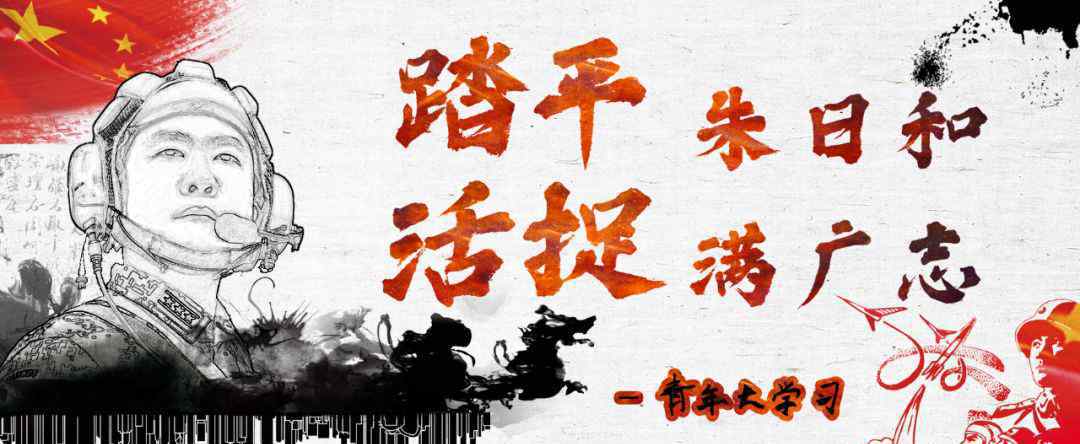 踏平 朱日和
活捉 满广志
- 青年大学习